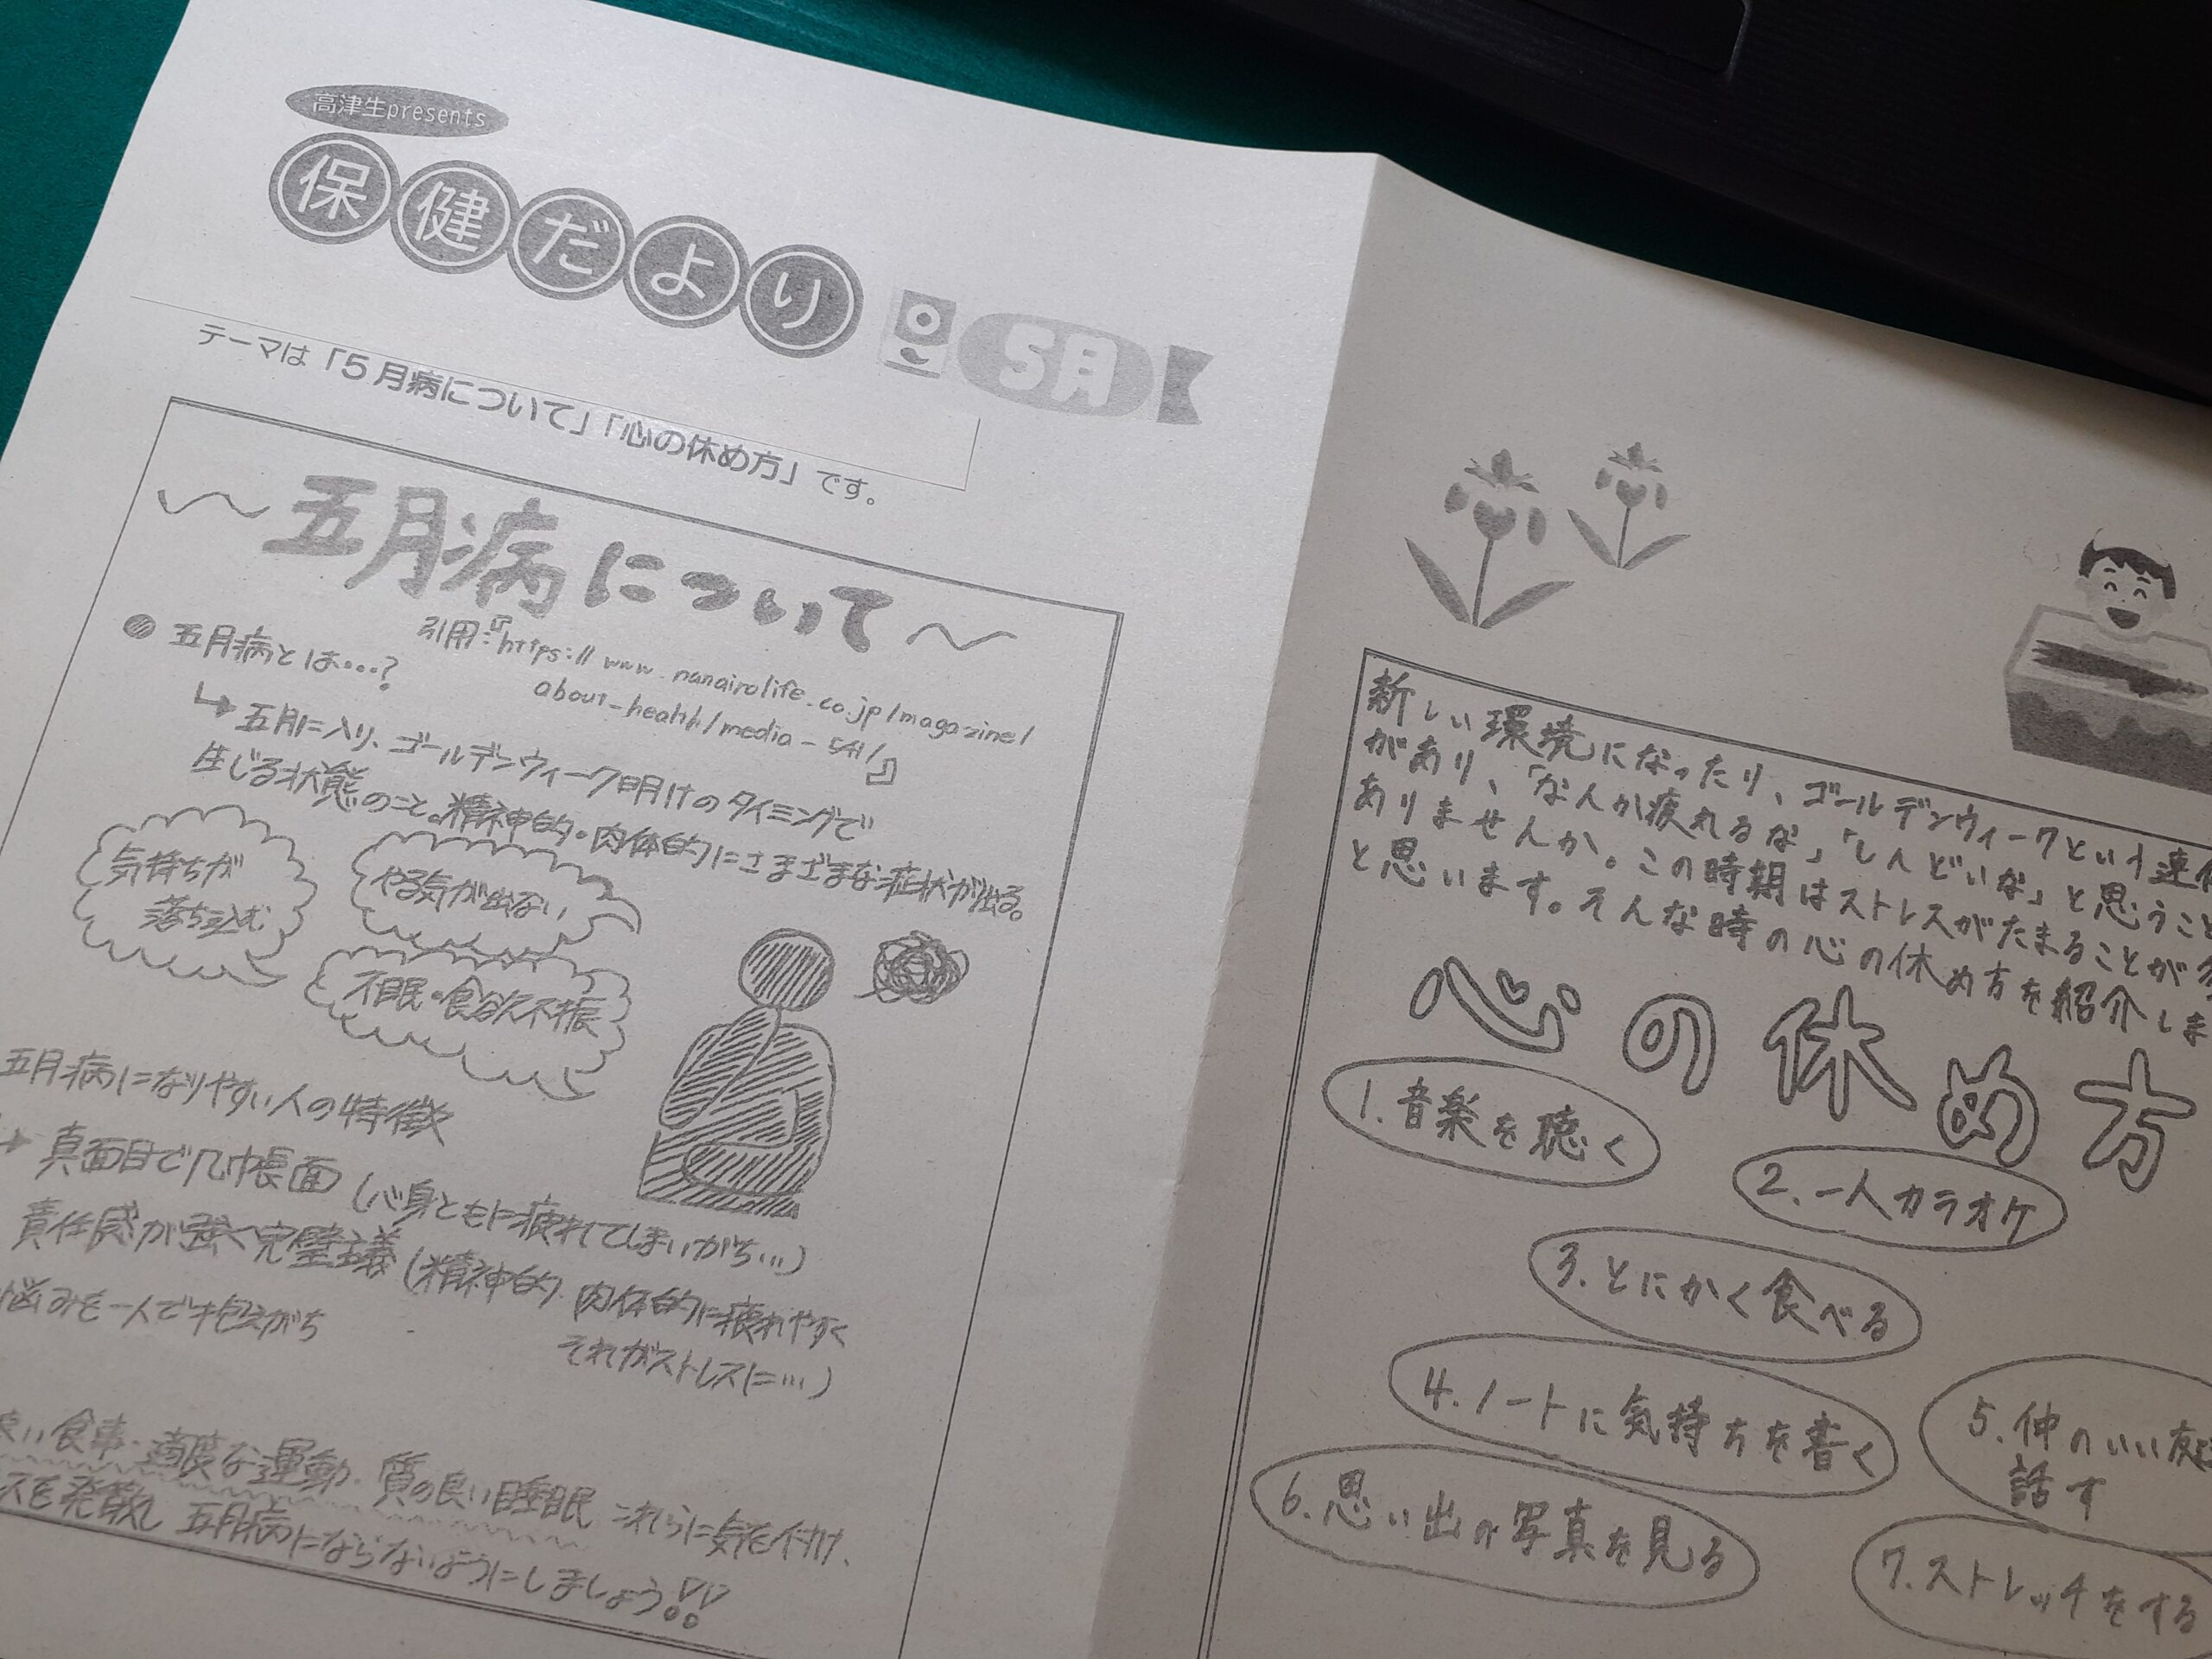 高津生presents
保健だより
5月
テーマは「5月病について」「心の休め方」です。
五月病について
引用:『https://www.nanairolife.co.jp/magazine/
about-health/media-541/』
五月病とは…?
→五月に入り、ゴールデンウィーク明けのタイミングで
生じる状態のこと。精神的・肉体的にさまざまな症状が出る。
気持ちが
落ち込む
やる気が出ない
不眠・食欲不振
五月病になりやすい人の特徴
→真面目で几帳面(心身ともに疲れてしまいがち…)
責任感が強く完璧主義(精神的・肉体的に疲れやすく
それがストレスに…)
悩みを一人で抱えがち
良い食事・適度な運動・質の良い睡眠 これらに気を付け、
スを発散し 五月病にならないようにしましょう!!
新しい環境になったり、ゴールデンウィークという連休
があり、「なんか疲れるな」「しんどいな」と思うこと
ありませんか。この時期はストレスがたまることが多
と思います。そんな時の心の休め方を紹介しま
心の休め方
1.音楽を聴く
2.一人カラオケ
3.とにかく食べる
4.ノートに気持ちを書く
5.仲のいい友達
話す
6.思い出の写真を見る
7.ストレッチをする